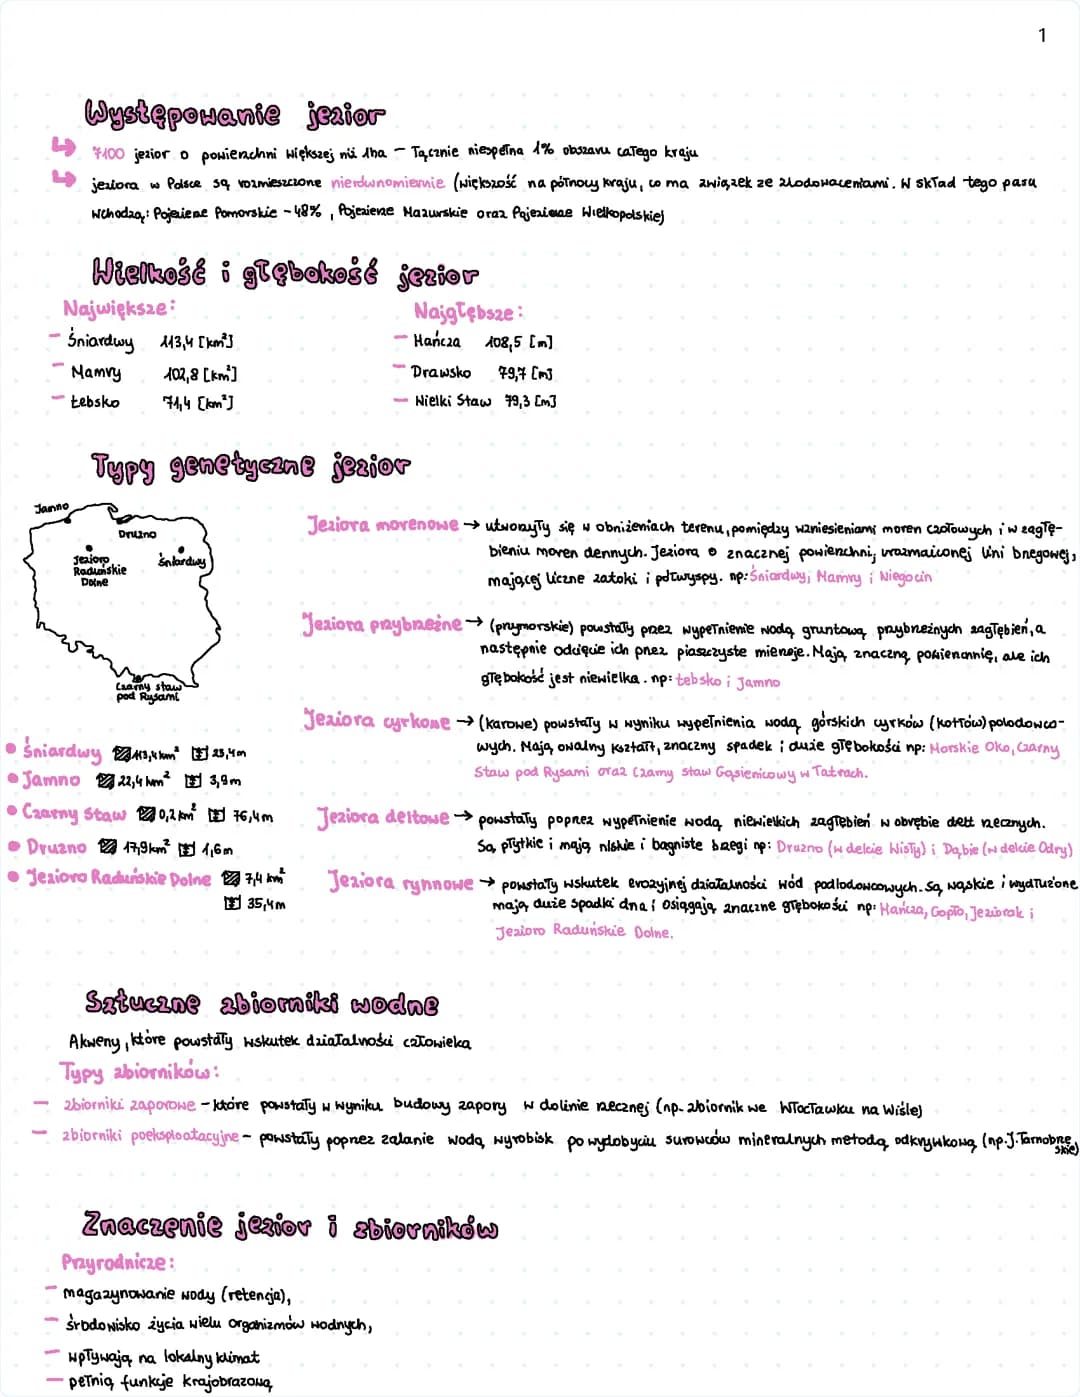 1
Występowanie jezior
↳ 7100 jezior o powierzchni większej niż 1ha – Łącznie niespełna 1% obszaru całego kraju
↳ jeziora w Polsce są rozmieszczone nierównomiernie (większość na północy kraju, co ma związek ze zlodowaceniami. W skład tego pasu
wchodzą: Pojezierze Pomorskie ~48%, Pojezierze Mazurskie oraz Pojezierze Wielkopolskiej
Wielkość i głębokość jezior
Największe:
– Śniardwy 113,4 [km²]
– Mamry 102,8 [km²]
– Łebsko 71,4 [km²]
Najgłębsze:
– Hańcza 108,5 [m]
– Drawsko 79,7 [m]
– Wielki Staw 79,3 [m]
Typy genetyczne jezior
Jamno
Druzno
Jezioro
Raduńskie
Dolne
Śniardwy
Czarny staw
pod Rysami
• Śniardwy 113,4 km² 23,4m
• Jamno 22,4 km² 3,9m
• Czarny Staw 0,2 km² 76,4m
• Druzno 17,9km² 1,6m
• Jezioro Raduńskie Dolne 7,4 km²
35,4m
Jeziora morenowe → utworzyły się w obniżeniach terenu, pomiędzy wzniesieniami moren czołowych i w zagłę-
bieniu moren dennych. Jeziora o znacznej powierzchni, urozmaiconej lini brzegowej,
mającej liczne zatoki i półwyspy. np: Śniardwy, Mamry i Niegocin
Jeziora przybrzeżne → (przymorskie) powstały przez wypełnienie wodą gruntową przybrzeżnych zagłębień, a
następnie odcięcie ich przez piaszczyste mierzeje. Mają znaczną powierzchnię, ale ich
głębokość jest niewielka. np: Łebsko i Jamno
Jeziora cyrkowe → (karowe) powstały w wyniku wypełnienia wodą górskich cyrków (kotłów) polodowco-
wych. Mają owalny kształt, znaczny spadek i duże głębokości np: Morskie Oko, Czarny
Staw pod Rysami oraz Czarny staw Gąsienicowy w Tatrach.
Jeziora deltowe → powstały poprzez wypełnienie wodą niewielkich zagłębień w obrębie delt rzecznych.
Są płytkie i mają niskie i bagniste brzegi np: Druzno (w delcie Wisły) i Dąbie (w delcie Odry)
Jeziora rynnowe → powstały wskutek erozyjnej działalności wód podlodowcowych. Są wąskie i wydłużone
mają duże spadki dna i osiągają znaczne głębokości np: Hańcza, Gopło, Jeziorak i
Jezioro Raduńskie Dolne.
Sztuczne zbiorniki wodne
Akweny, które powstały wskutek działalności człowieka
Typy zbiorników:
– zbiorniki zaporowe – które powstały w wyniku budowy zapory w dolinie rzecznej (np. zbiornik we Włocławku na Wiśle)
– zbiorniki poeksploatacyjne – powstały poprzez zalanie wodą wyrobisk po wydobyciu surowców mineralnych metodą odkrywkową (np. J. Tarnobrze
skie)
Znaczenie jezior i zbiorników
Przyrodnicze:
– magazynowanie wody (retencja),
– środowisko życia wielu organizmów wodnych,
– wpływają na lokalny klimat
– pełnią funkcje krajobrazową